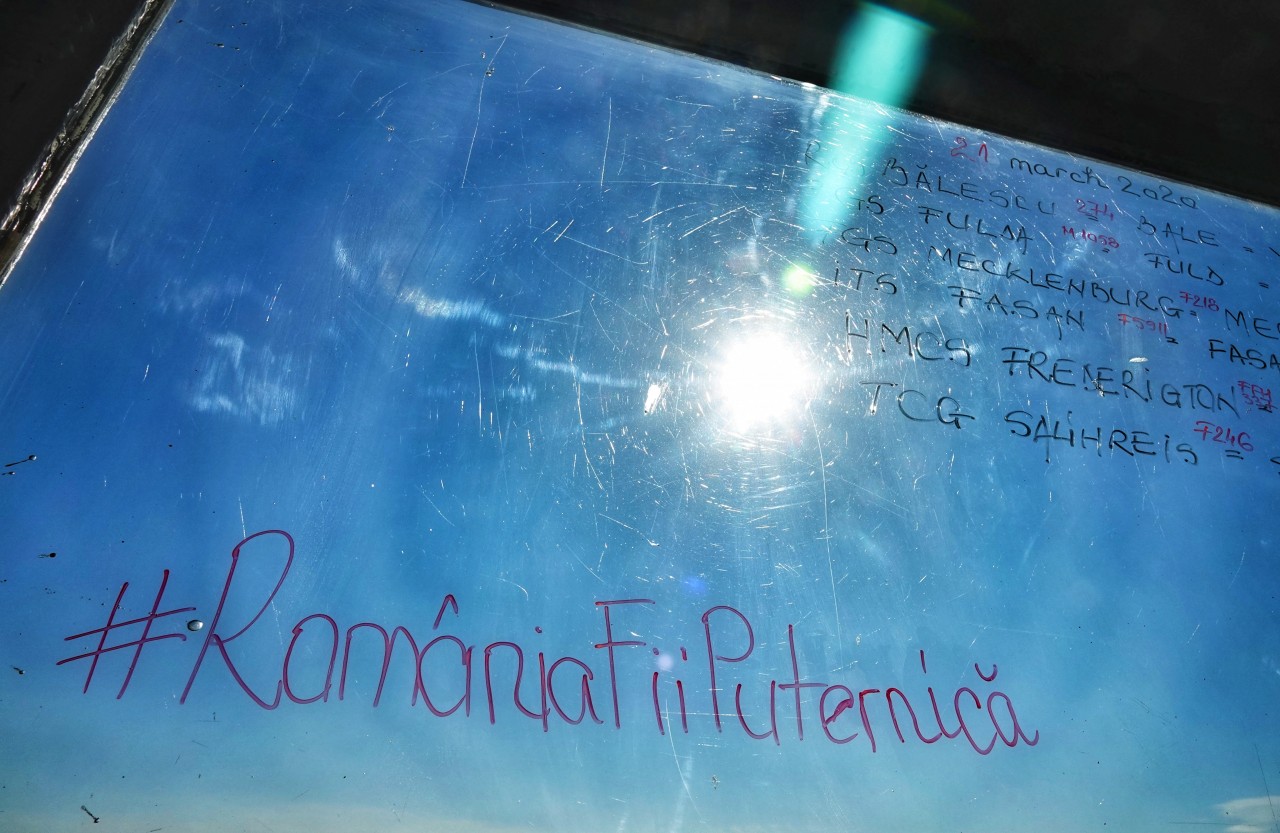 21 march 2020
BĂLESCU 274 = BALE =
GS FULDA M1058 = FULD =
GS MECKLENBURG F218 = MEC
ITS FASAN F591 = FASA
HMCS FREDERIGTON FFH 337 =
TCG SALİHREİS F246 = S
#RomâniaFiiPuternică